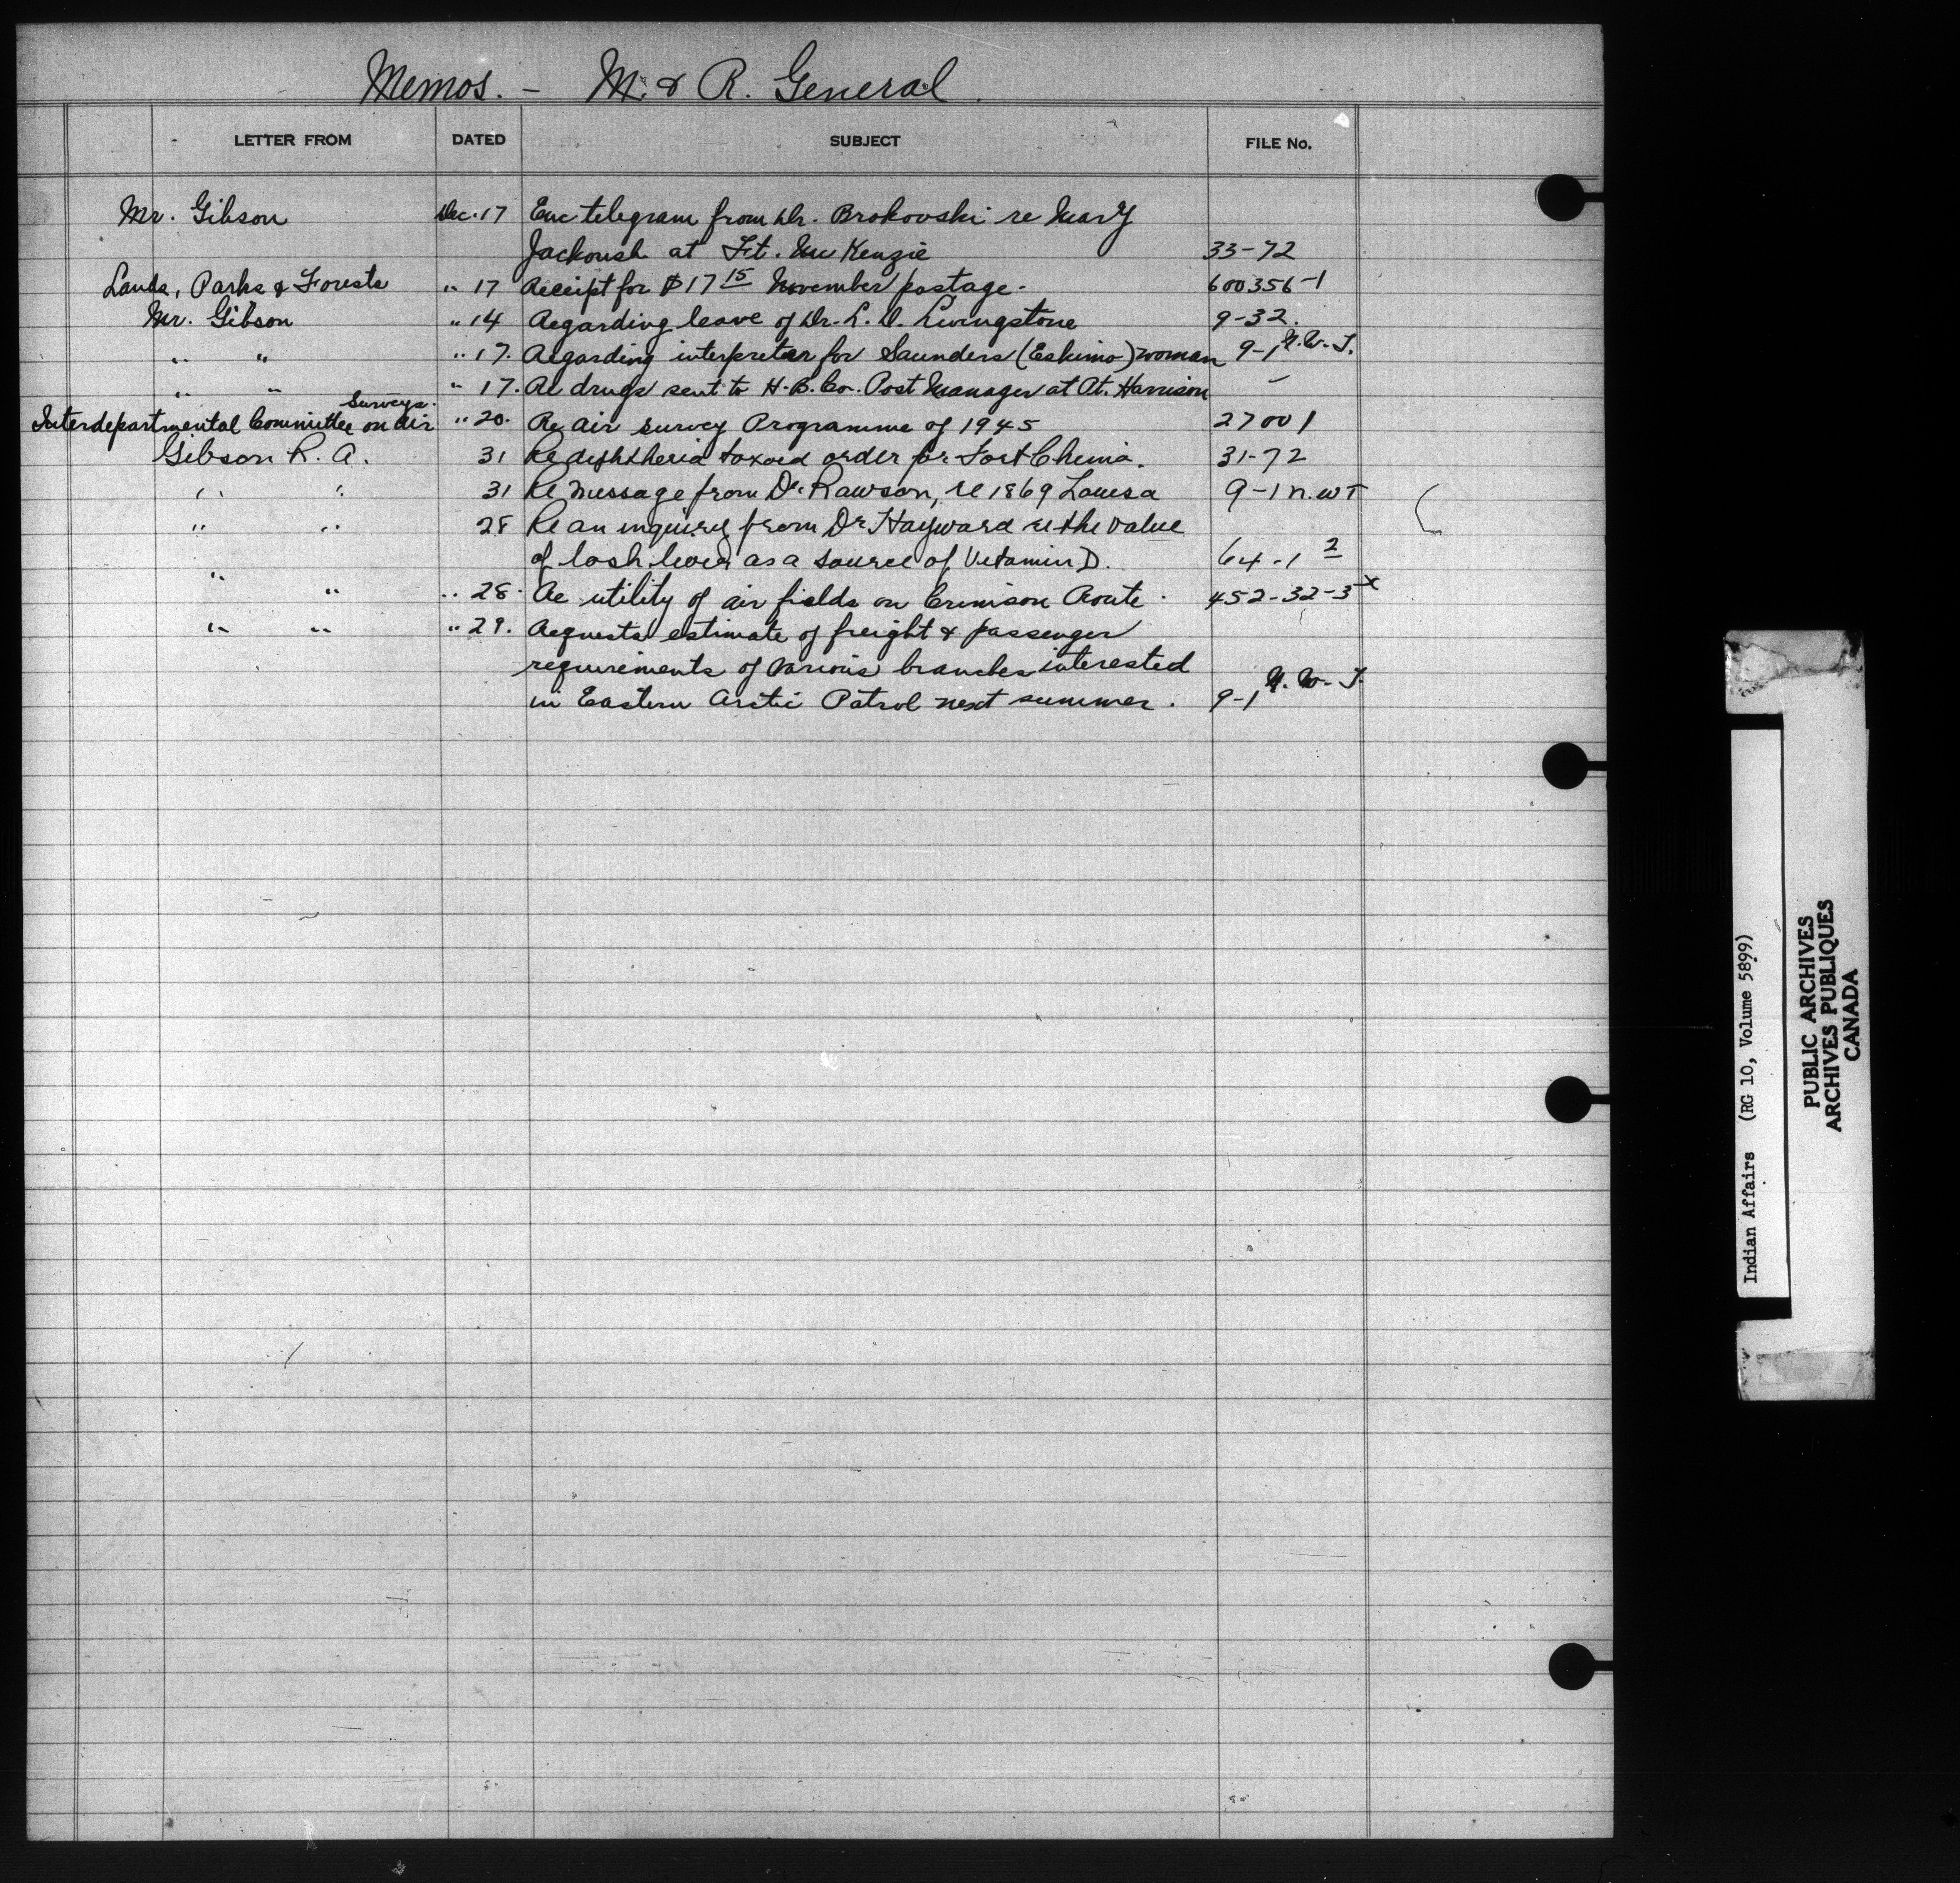 Memos. - M. & R. General.
LETTER FROM DATED SUBJECT FILE No.
Mr. Gibson Dec. 17 Enc telegram from Dr. Brokovski re Mary
Jackoush at Ft. Mc Kenzie 33-72
Lands, Parks & Forests " 17 Receipt for $17 15 November postage. 600356-1
Mr. Gibson " 14 Regarding leave of Dr. L. D. Livingstone 9-32.
" " " 17. Regarding interpreter for Saunders (Eskimo) woman 9-1 N.W.T.
" " " 17. Re drugs sent to H.B. Co. Post Manager at Pt. Harrison -
Interdepartmental Committee on Air Surveys. " 20. Re air survey Programme of 1945 27001
Gibson R. A. 31 Re diphtheria toxoid order for Fort Chimo. 31-72
" " 31 Re message from Dr. Rawson, re 1869 Louisa 9-1 N.WT
" " 28 Re an inquiry from Dr Hayward re the value
of losh liver as a source of Vitamin D. 64-1 2
" " " 28. Re utility of air fields on Crimson Route. 452-32-3 x
" " " 29. Requests estimate of freight & passenger
requirements of various branches interested
in Eastern Arctic Patrol next summer. 9-1 N.W.T.
Indian Affairs (RG 10, Volume 5899)
PUBLIC ARCHIVES
ARCHIVES PUBLIQUES
CANADA